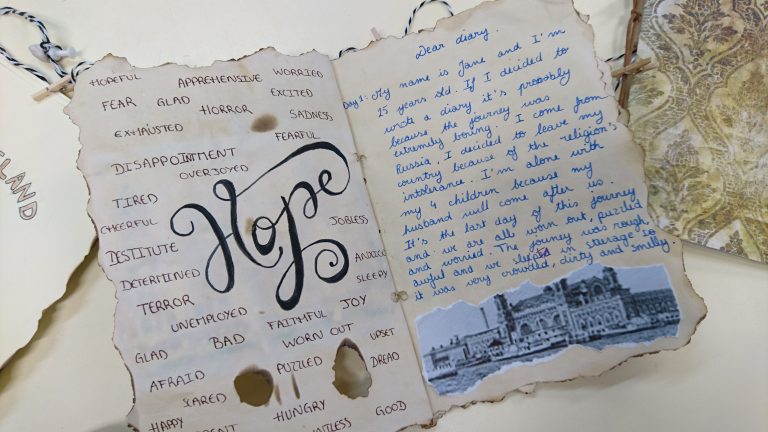 LAND
HOPEFUL APPREHENSIVE WORRIED
FEAR GLAD EXCITED
HORROR SADNESS
EXHAUSTED FEARFUL
DISAPPOINTMENT
OVERJOYED
TIRED
CHEERFUL JOBLESS
Hope
DESTITUTE
DETERMINED SLEEPY
TERROR
UNEMPLOYED FAITHFUL JOY
GLAD BAD WORN OUT UPSET
AFRAID PUZZLED DREAD
SCARED
HAPPY HUNGRY GOOD
Dear diary.
Day 1: My name is Jane and I'm
25 years old. If I decided to
write a diary it's proobably
because the journey was
extremily boring. I come from
Russia, I decided to leave my
country because of the religion's
intolerance. I'm alone with
my 4 children because my
husband will come after us.
It's the last day of this journey
and we are all worn out, puzzled
and worried. The jouney was rough
awful and we slept in sterage so
it was very crowded, dirty and smelly